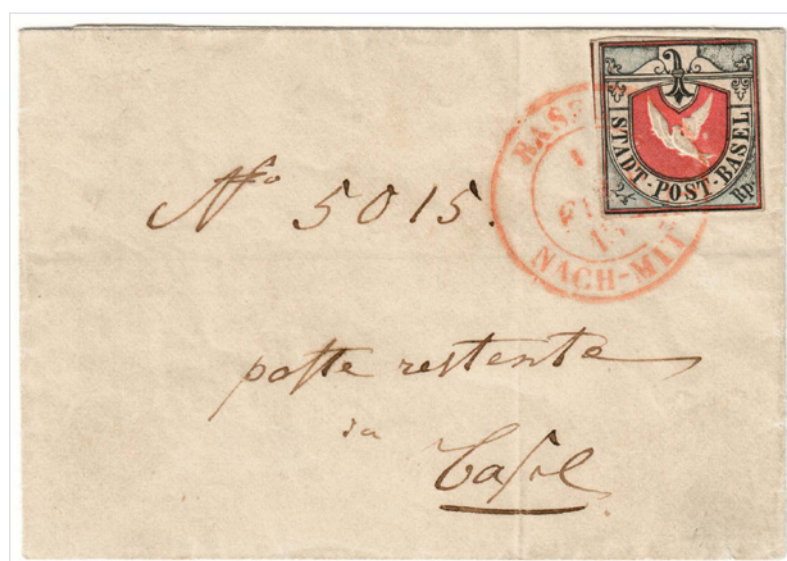 STADT-POST-BASEL
2½ Rp.
BASEL
NACH-MIT
No 5015.
poste restente
in
Basel